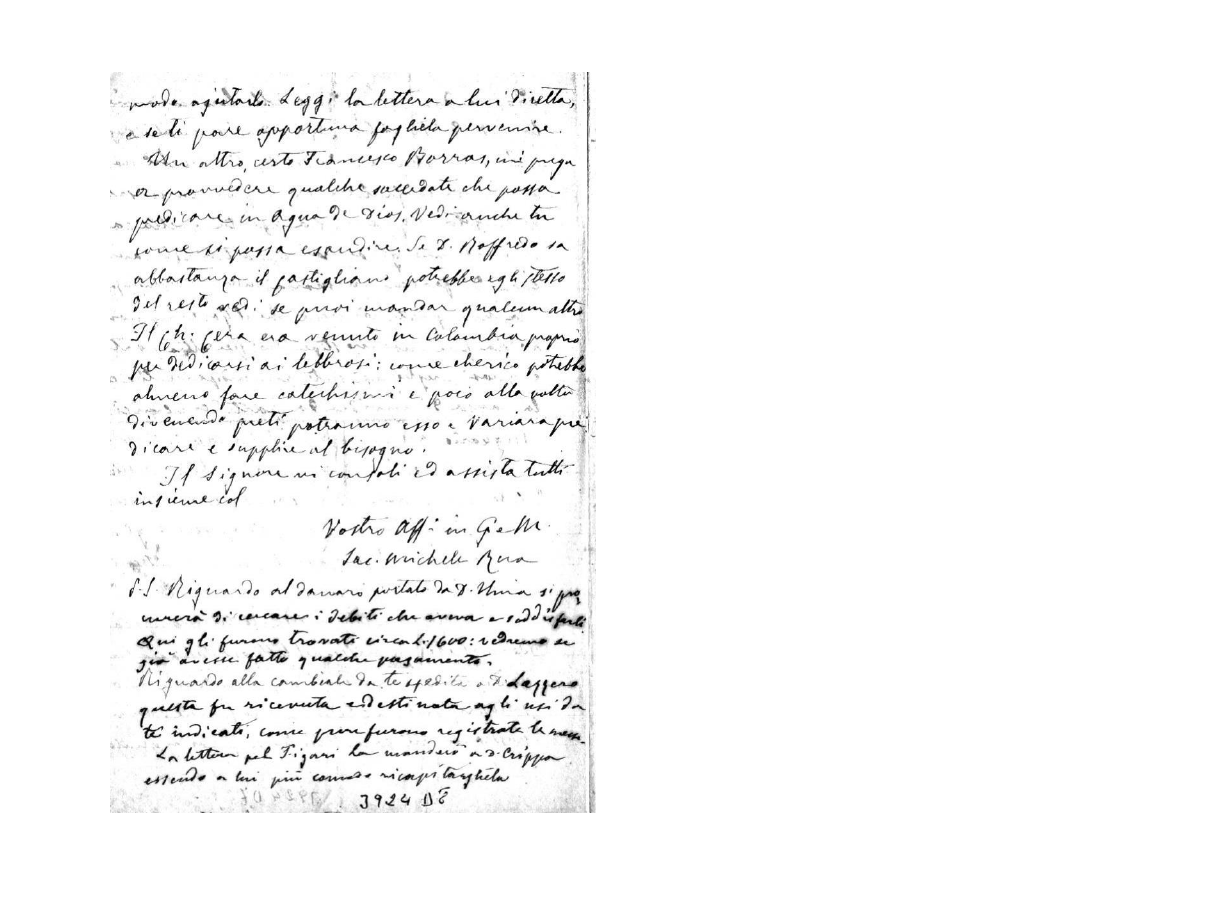 modo ajutarlo. Leggi la lettera a lui diretta,
e se ti pare opportuna fagliela pervenire.
Un altro, certo Francesco Borras, mi prega
a provvedere qualche sacerdote che possa
predicare in Agua de Dios. Vedi anche tu
come si possa esaudire. Se D. Roffredo sa
abbastanza il castigliano potrebbe egli stesso
del resto vedi se puoi mandar qualcun altro
Il Ch. Gera era venuto in Colombia proprio
per dedicarsi ai lebbrosi: come cherico potrebbe
almeno fare catechismi e poco alla volta
divenendo preti potranno esso e Variara pre
dicare e supplire al bisogno.
Il Signore vi consoli ed assista tutti
insieme col
Vostro Aff. in G. e M.
Sac. Michele Rua
P.S. Riguardo al danaro portato da D. Unia si pro
curerà di cercare i debiti che aveva e soddisfarli
Qui gli furono trovate circa L. 1600: vedremo se
già avesse fatto qualche pagamento.
Riguardo alla cambiale da te spedita a D. Lazzero
questa fu ricevuta e destinata agli usi da
te indicati, come pure furono registrate le messe.
La lettera pel Figari la manderò a D. Crippa
essendo a lui più comodo ricapitargliela
3924 D8